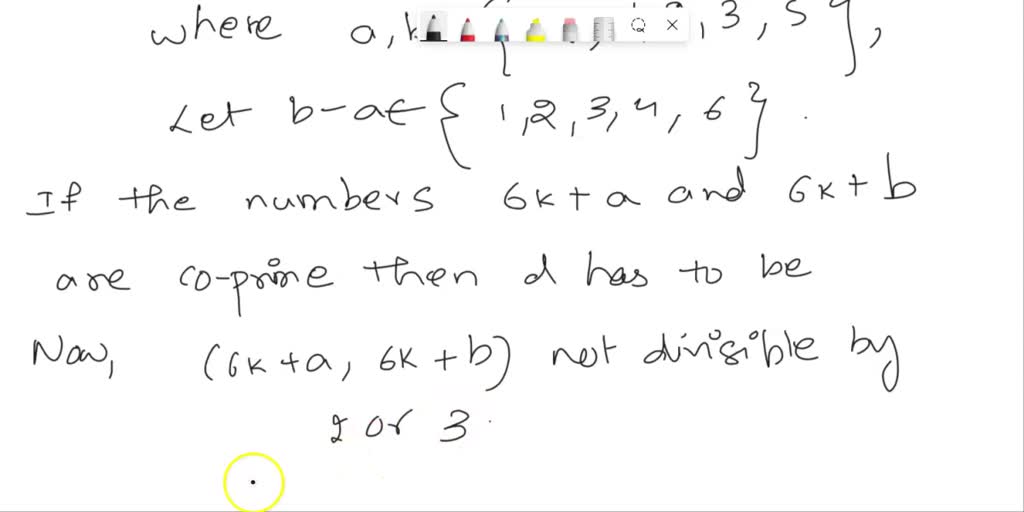 where a, , 3, 5 },
Let b-a∈ { 1, 2, 3, 4, 6 } .
If the numbers 6k+a and 6k+b
are co-prime then d has to be
Now, (6k+a, 6k+b) not divisible by
2 or 3.